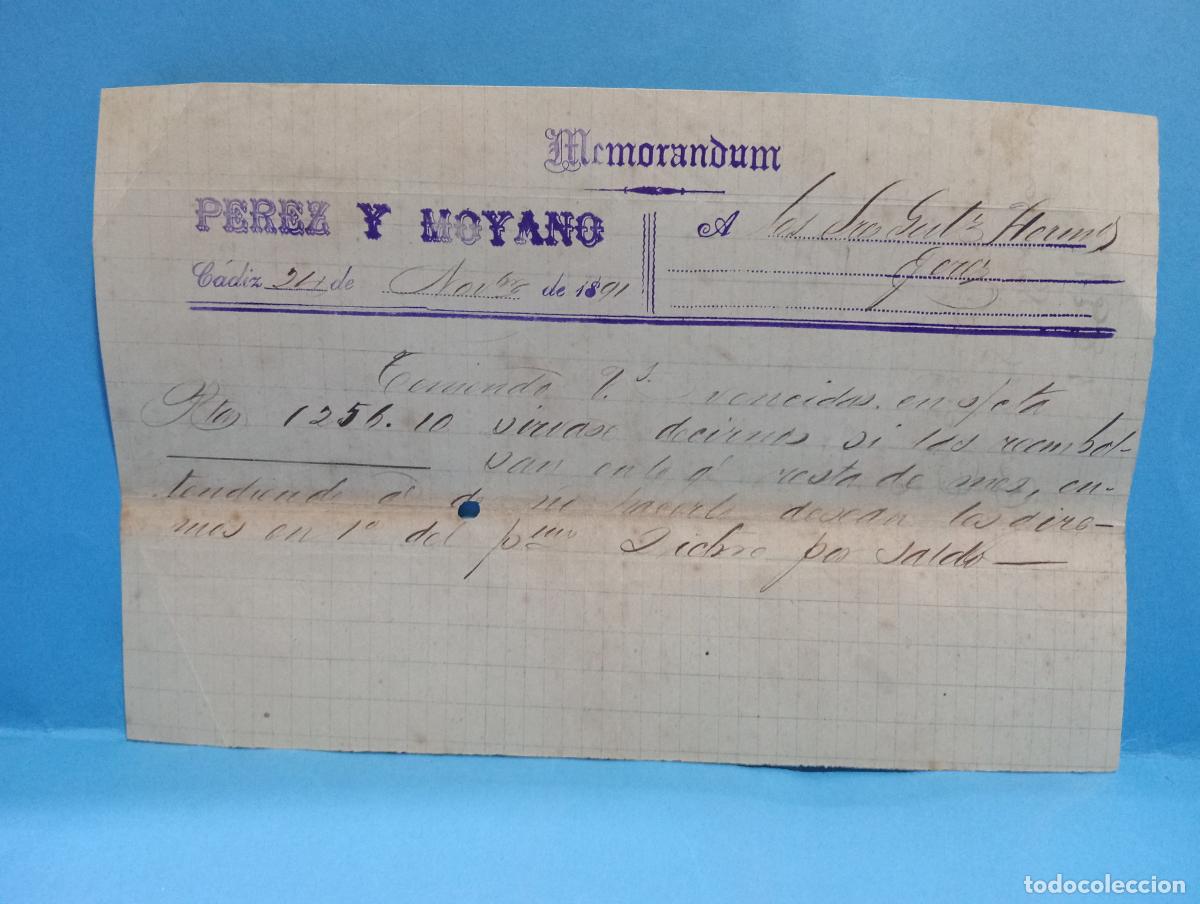 Memorandum
PEREZ Y MOYANO
Cádiz 24 de Novbre de 1891
A los Sres Gutz Hermos
Jerez
Teniendo Vs. vencidas en s/cta
Ptas 1256.10 sirvase decirnos si las reembol-
san en lo q' resta de mes, en-
tendiendo q' de no hacerlo desean los gire-
mos en 1º del pmo Dichre por saldo
todocoleccion